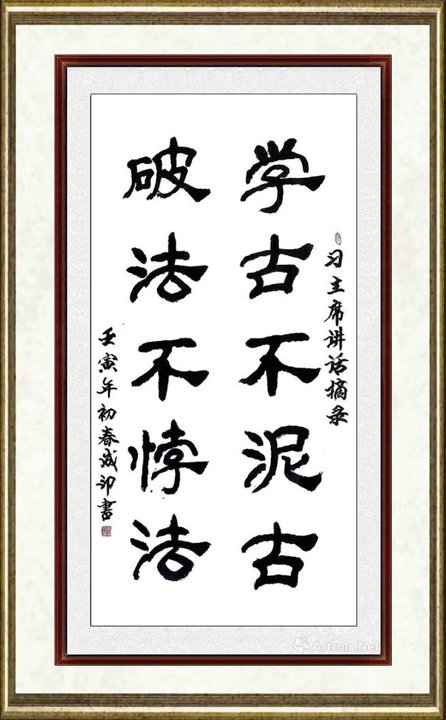 习主席讲话摘录
学古不泥古
破法不悖法
壬寅年初春成印书
Artron.Net